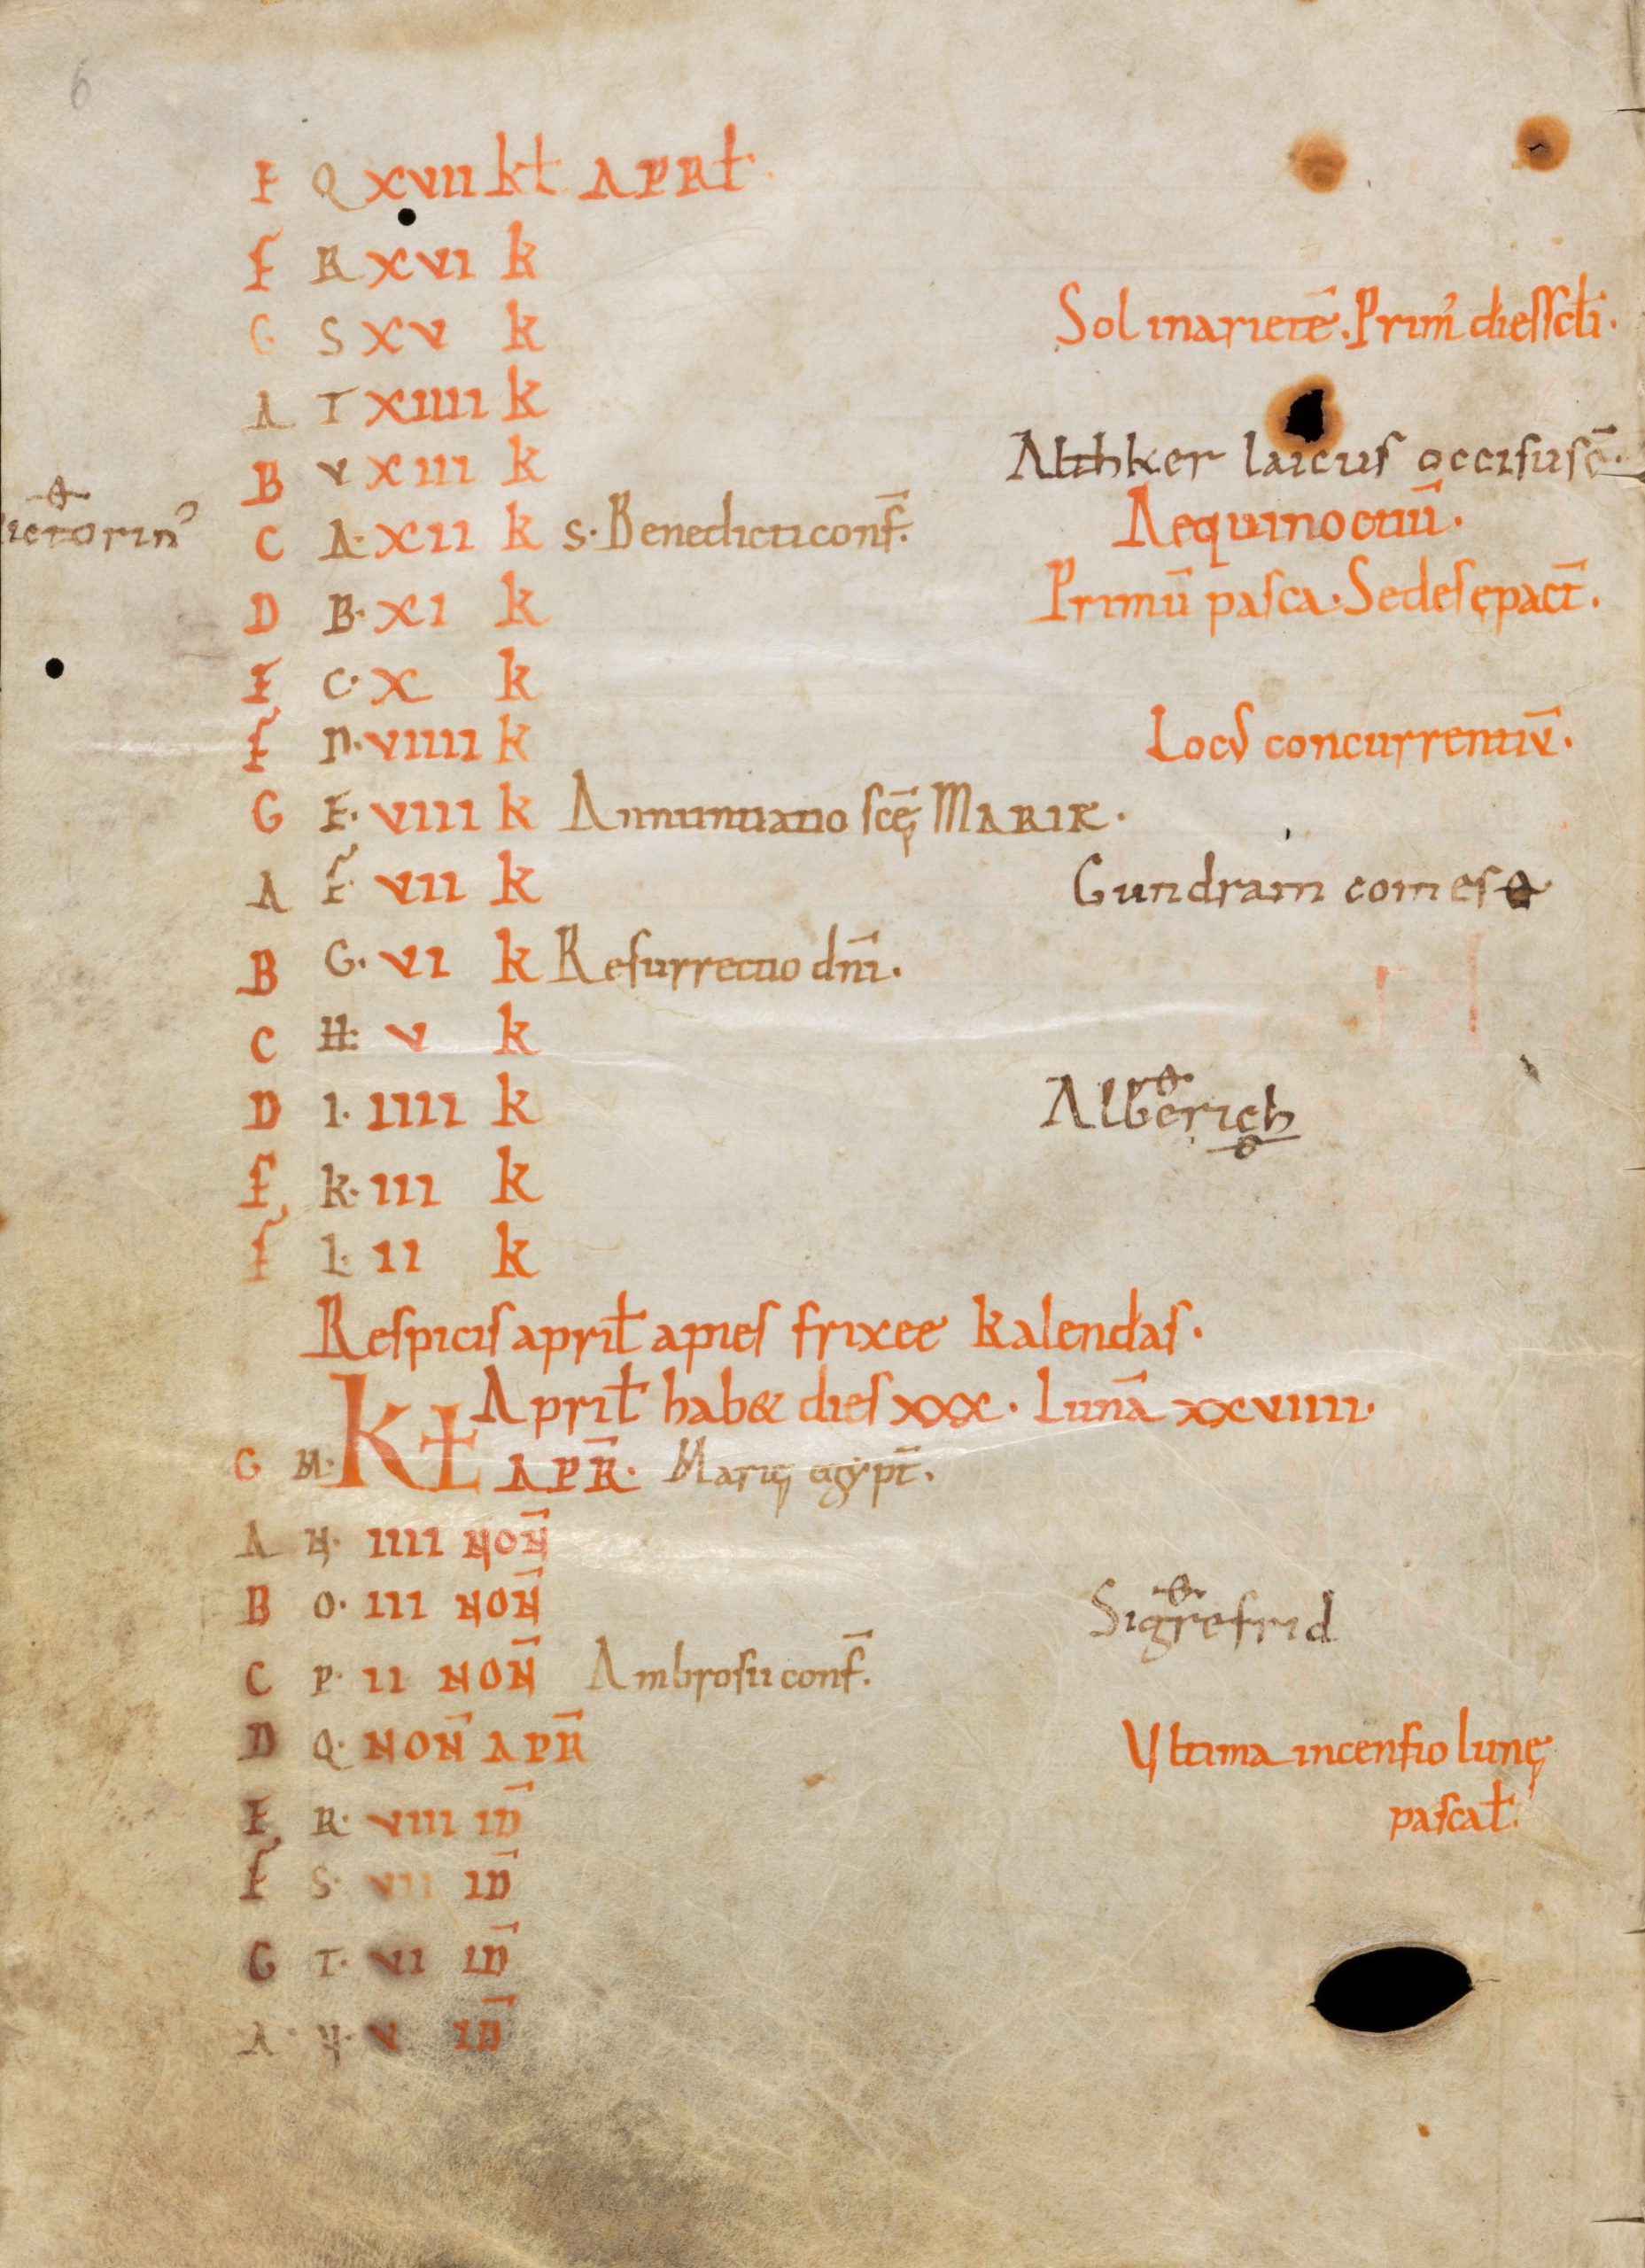 6
E Q XVII kł APRł
F R XVI k
G S XV k Sol inarietē. Prim' dies scłi.
A T XIIII k
B V XIII k laicus occisus ē.
ictorin' C A. XII k S. Benedicti conf̄. Aequinoctiū.
D B. XI k Primū pasca. Sedes epact̄.
E C. X k
F D. VIIII k Locus concurrentiū.
G E. VIII k Annuntiatio scę̄ MARIE.
A F. VII k Gundram comes
B G. VI k Resurrectio dn̄i.
C H. V k
D I. IIII k Alberich
E k. III k
F L. II k
Respicis aprił aries frixee kalendas.
Aprił hab& dies XXX. Lunā XXVIIII.
G M. Kł APR̄. Marię egypt̄.
A N. IIII NON̄
B O. III NON̄ Sigrefrid
C P. II NON̄ Ambrosii conf̄.
D Q. NON̄ APR̄
Vltima incensio lunę
E R. VIII ID̄ pascał.
F S. VII ID̄
G T. VI ID̄
A V. V ID̄